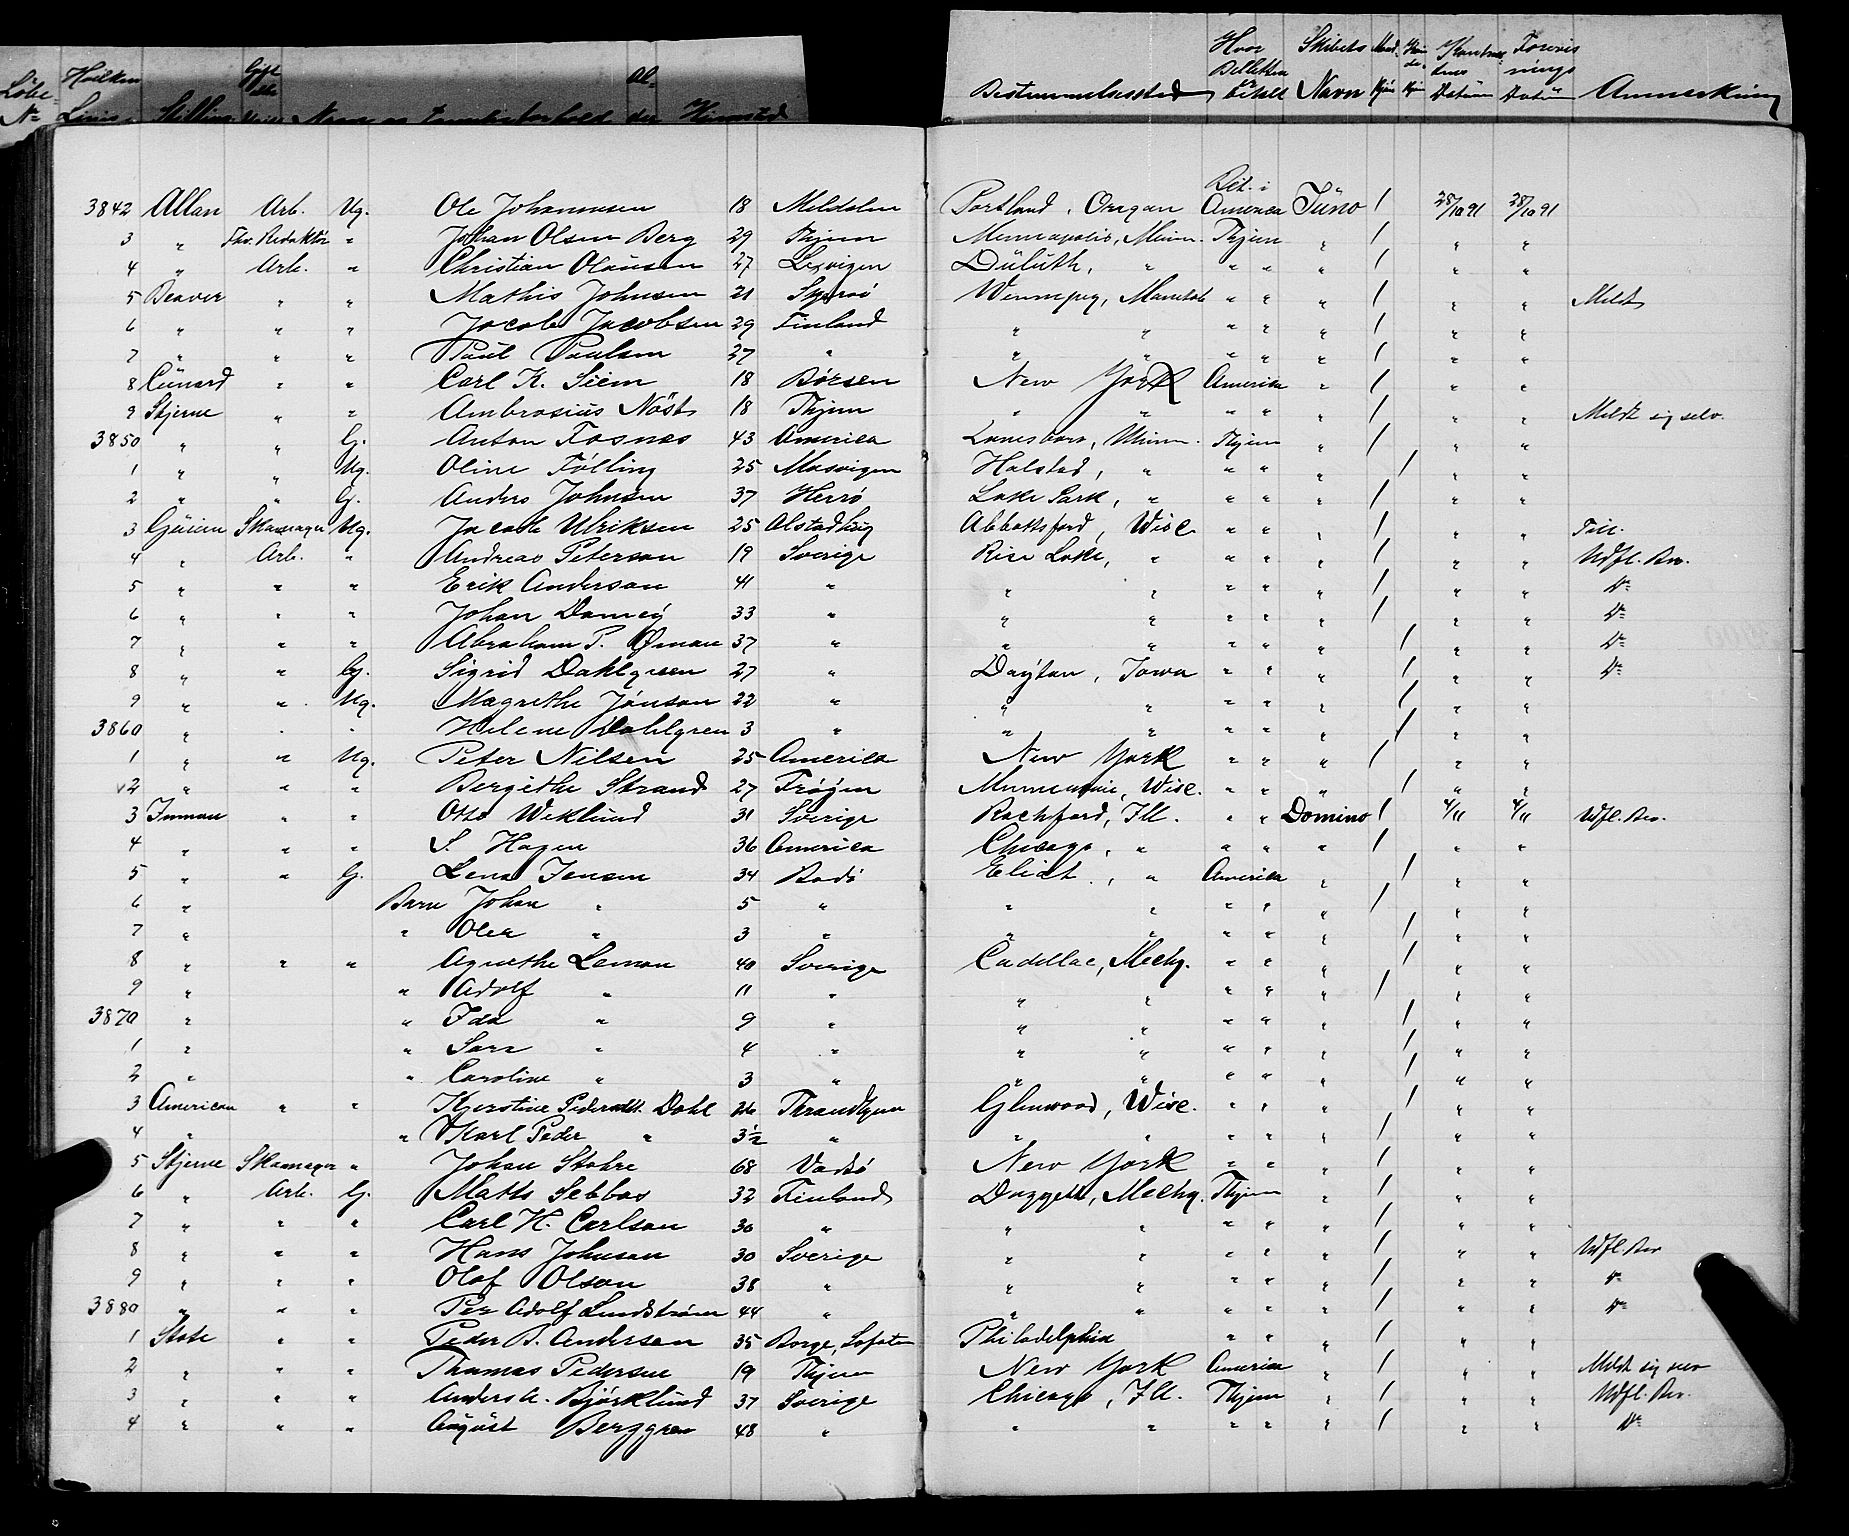 Løbe No Hvilken Linie Stilling Gift eller Navn og Familieforhold Alder Hjemsted Bestemmelsessted Hvor Billetten er betalt Skibets Navn Mand-kjøn Kvinde-kjøn Kontraktens Datum Forevisnings Datum Anmærkning
3842 Allan Arb. Ug. Ole Johannesen 18 Meldalen Portland, Oregon Bet. i America Juno / 28/10 91 28/10 91
3 " Fhv. Redaktör " Johan Olsen Berg 29 Thjem Minneapolis, Minn. Thjem " / " "
4 " Arb. " Christian Olausen 27 Lexvigen Duluth, " " " " / " "
5 Beaver " " Mathis Johnsen 21 Winnipeg, Manitob " " " / " "
6 " " " Jacob Jacobsen 29 Finland " " " " " / " "
7 " " " Paul Paulsen 27 " " " " " " / " "
8 Cunard " " Carl K. Siem 18 Børsen New York America " / " "
9 Stjerne " " Ambrosius Nöst 18 Thjem " " " " " / " " Meldt sig selv.
3850 " " G. Anton Fosnes 43 America Lanesboro, Minn. Thjem " / " "
1 " " Ug. Oline Følling 25 Mosvigen Halstad, " " " " / " "
2 " " G. Anders Johnsen 37 Herrö Lake Park, " " " " / " "
3 Guion Skomager Ug. Jacob Ulriksen 25 Alstadhoug Abbottsford, Wisc " " " / " "
4 " Arb. " Andreas Peterson 19 Sverige Rice Lake, " " " " / " " Udfl. Bev.
5 " " " Erik Anderson 41 " " " " " " / " " Do
6 " " " Johan Domeij 33 " " " " " " / " " Do
7 " " " Abraham P. Öman 37 " " " " " " / " " Do
8 " " G. Sigrid Dahlgreen 27 " Dayton, Iowa " " " / " " Do
9 " " Ug. Magrethe Jonson 22 " " " " " " / " "
3860 " " " Helene Dahlgren 3 " " " " " " / " "
1 " " Ug. Peter Nilsen 25 America New York " " " / " "
2 " " " Bergithe Strand 27 Frøyen Menomonie, Wisc. " " " / " "
3 Inman " " Otto Weklund 31 Sverige Rockford, Ill. " " Domino / 4/11 4/11 Udfl. Bev.
4 " " " S. Hagen 36 America Chicago, " " " " / " "
5 " " G. Lena Jensen 34 Bodö " America " / " "
6 " Barn Johan " 5 " " " " " " / " "
7 " " Olea " 3 " " " " " " / " "
8 " " " Agnethe Leman 40 Sverige Cadellac, Mechg. " " " / " "
9 " " Adolf " 11 " " " " " " / " "
3870 " " Ida " 9 " " " " " " / " "
1 " " Sara " 4 " " " " " " / " "
2 " " Caroline " 3 " " " " " " / " "
3 American " " Kjerstine Pedersdtt. Dahl 26 Throndhjem Glenwood, Wisc. " " " / " "
4 " " Karl Peder " 3½ " " " " " " / " "
5 Stjerne Skomager " Johan Stohre 68 Vadsö New York " " " / " "
6 " Arb. G. Matts Sebbas 32 Finland Daggett, Mechg. Thjem " / " "
7 " " " Carl H. Carlson 30 " " " " " " / " "
8 " " " Hans Johnson 30 Sverige " " " " " / " " Udfl. Bev
9 " " " Olof Olson 38 " " " " " " / " " Do
3880 " " " Per Adolf Lundström 44 " " " " " " / " " Do
1 State " " Peder B. Andersen 35 Borge, Lofoten Philadelphia " " " / " "
2 " " " Thomas Pedersen 19 Thjem New York America " / " " Meldt sig selv
3 " " " Anders A. Björklund 37 Sverige Chicago, Ill. Thjem " / " " Udfl. Bev.
4 " " " August Berggren 48 " " " " " " / " " Do